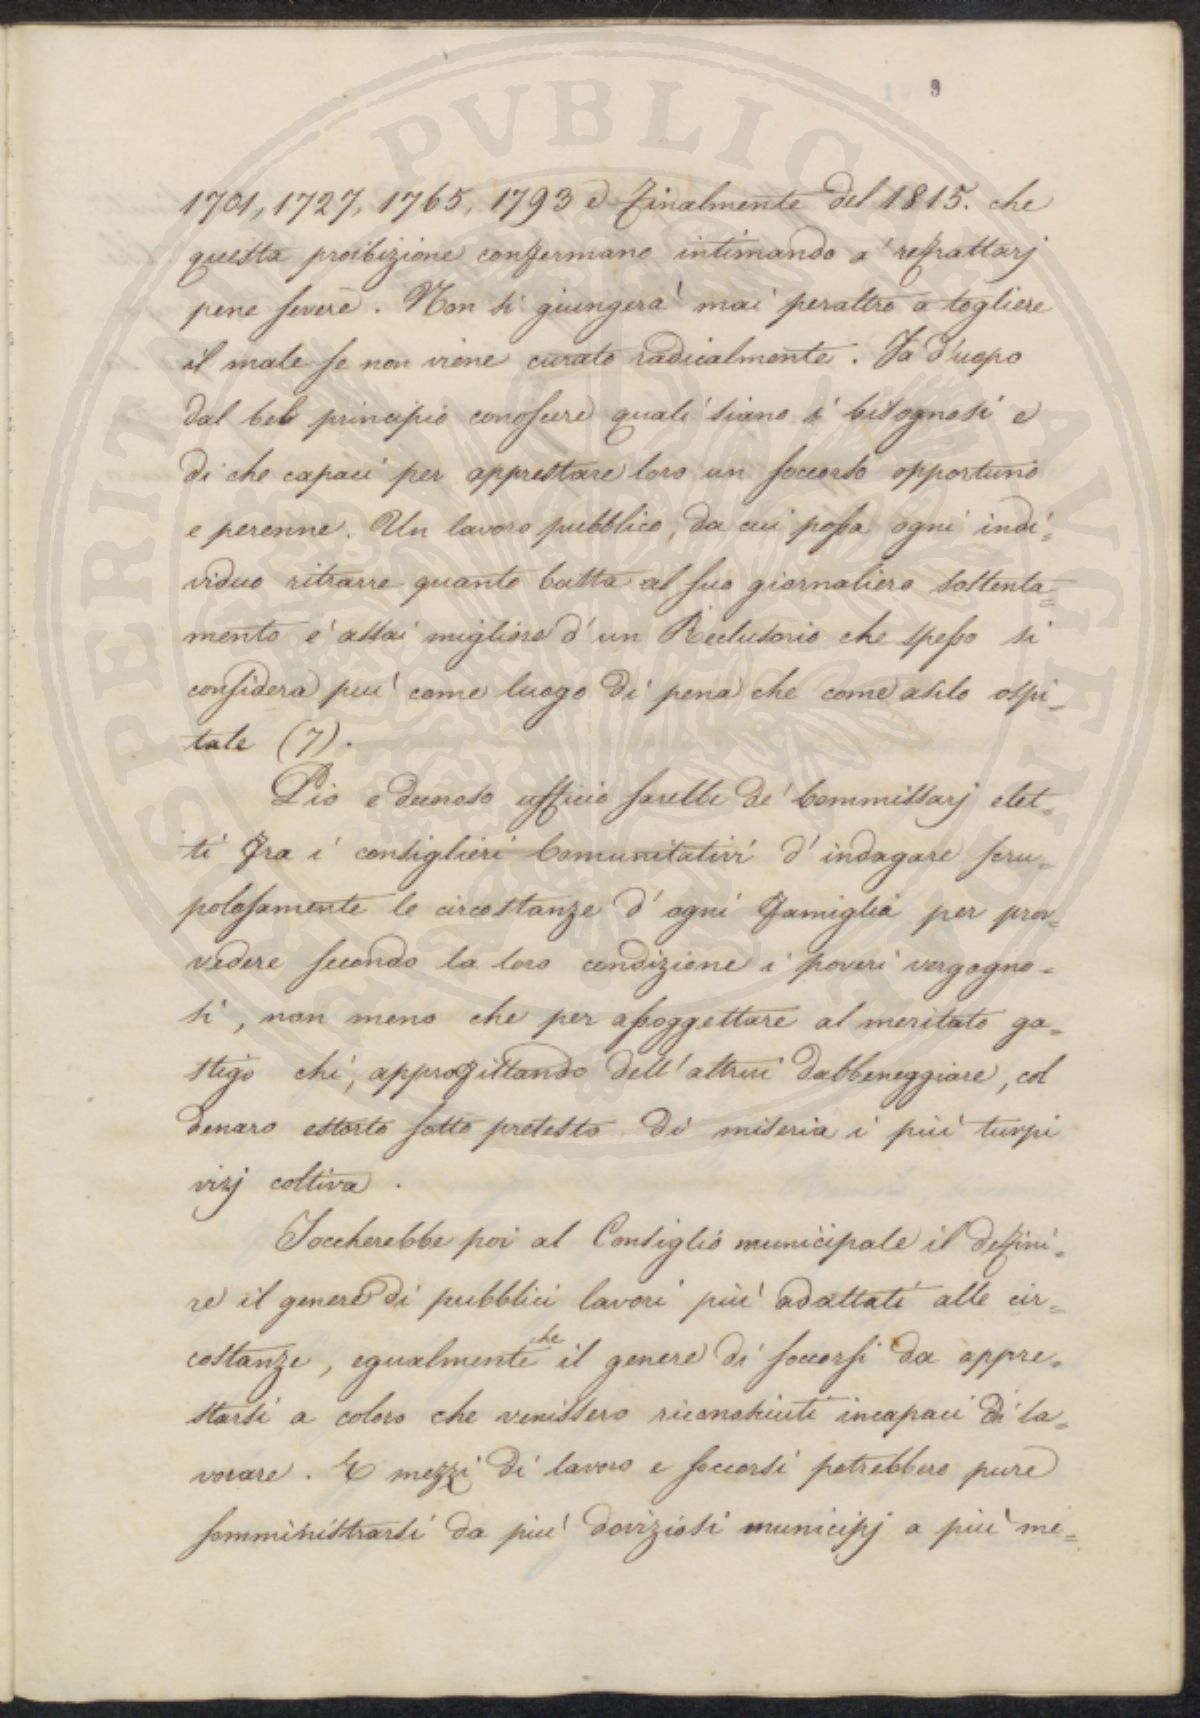 9
1701, 1727, 1765, 1793 e finalmente del 1815. che
questa proibizione confermano intimando a' refrattarj
pene severe. Non si giungerà mai peraltro a togliere
il male se non viene curato radicalmente. Fa d'uopo
dal bel principio conoscere quali siano i bisognosi e
di che capaci per apprestare loro un soccorso opportuno
e perenne. Un lavoro pubblico, da cui possa ogni indi=
viduo ritrarre quanto basta al suo giornaliero sostenta=
mento è assai migliore d'un Reclusorio che spesso si
considera più come luogo di pena che come asilo ospi=
tale (7).
Pio e decoroso ufficio sarebbe de' Commissarj elet=
ti fra i consiglieri Comunitativi d'indagare scru=
polosamente le circostanze d'ogni famiglia per prov=
vedere secondo la loro condizione i poveri vergogno=
si, non meno che per assoggettare al meritato ga=
stigo chi, approfittando dell'altrui dabbeneggiare, col
denaro estorto sotto pretesto di miseria i più turpi
vizj coltiva.
Toccherebbe poi al Consiglio municipale il defini=
re il genere di pubblici lavori più adattati alle cir=
costanze, egualmente che il genere di soccorsi da appre=
starsi a coloro che venissero riconosciuti incapaci di la=
vorare. E mezzi di lavoro e soccorsi potrebbero pure
somministrarsi da più doviziosi municipj a più me=
SPERITAT PVBLICA AVGEN